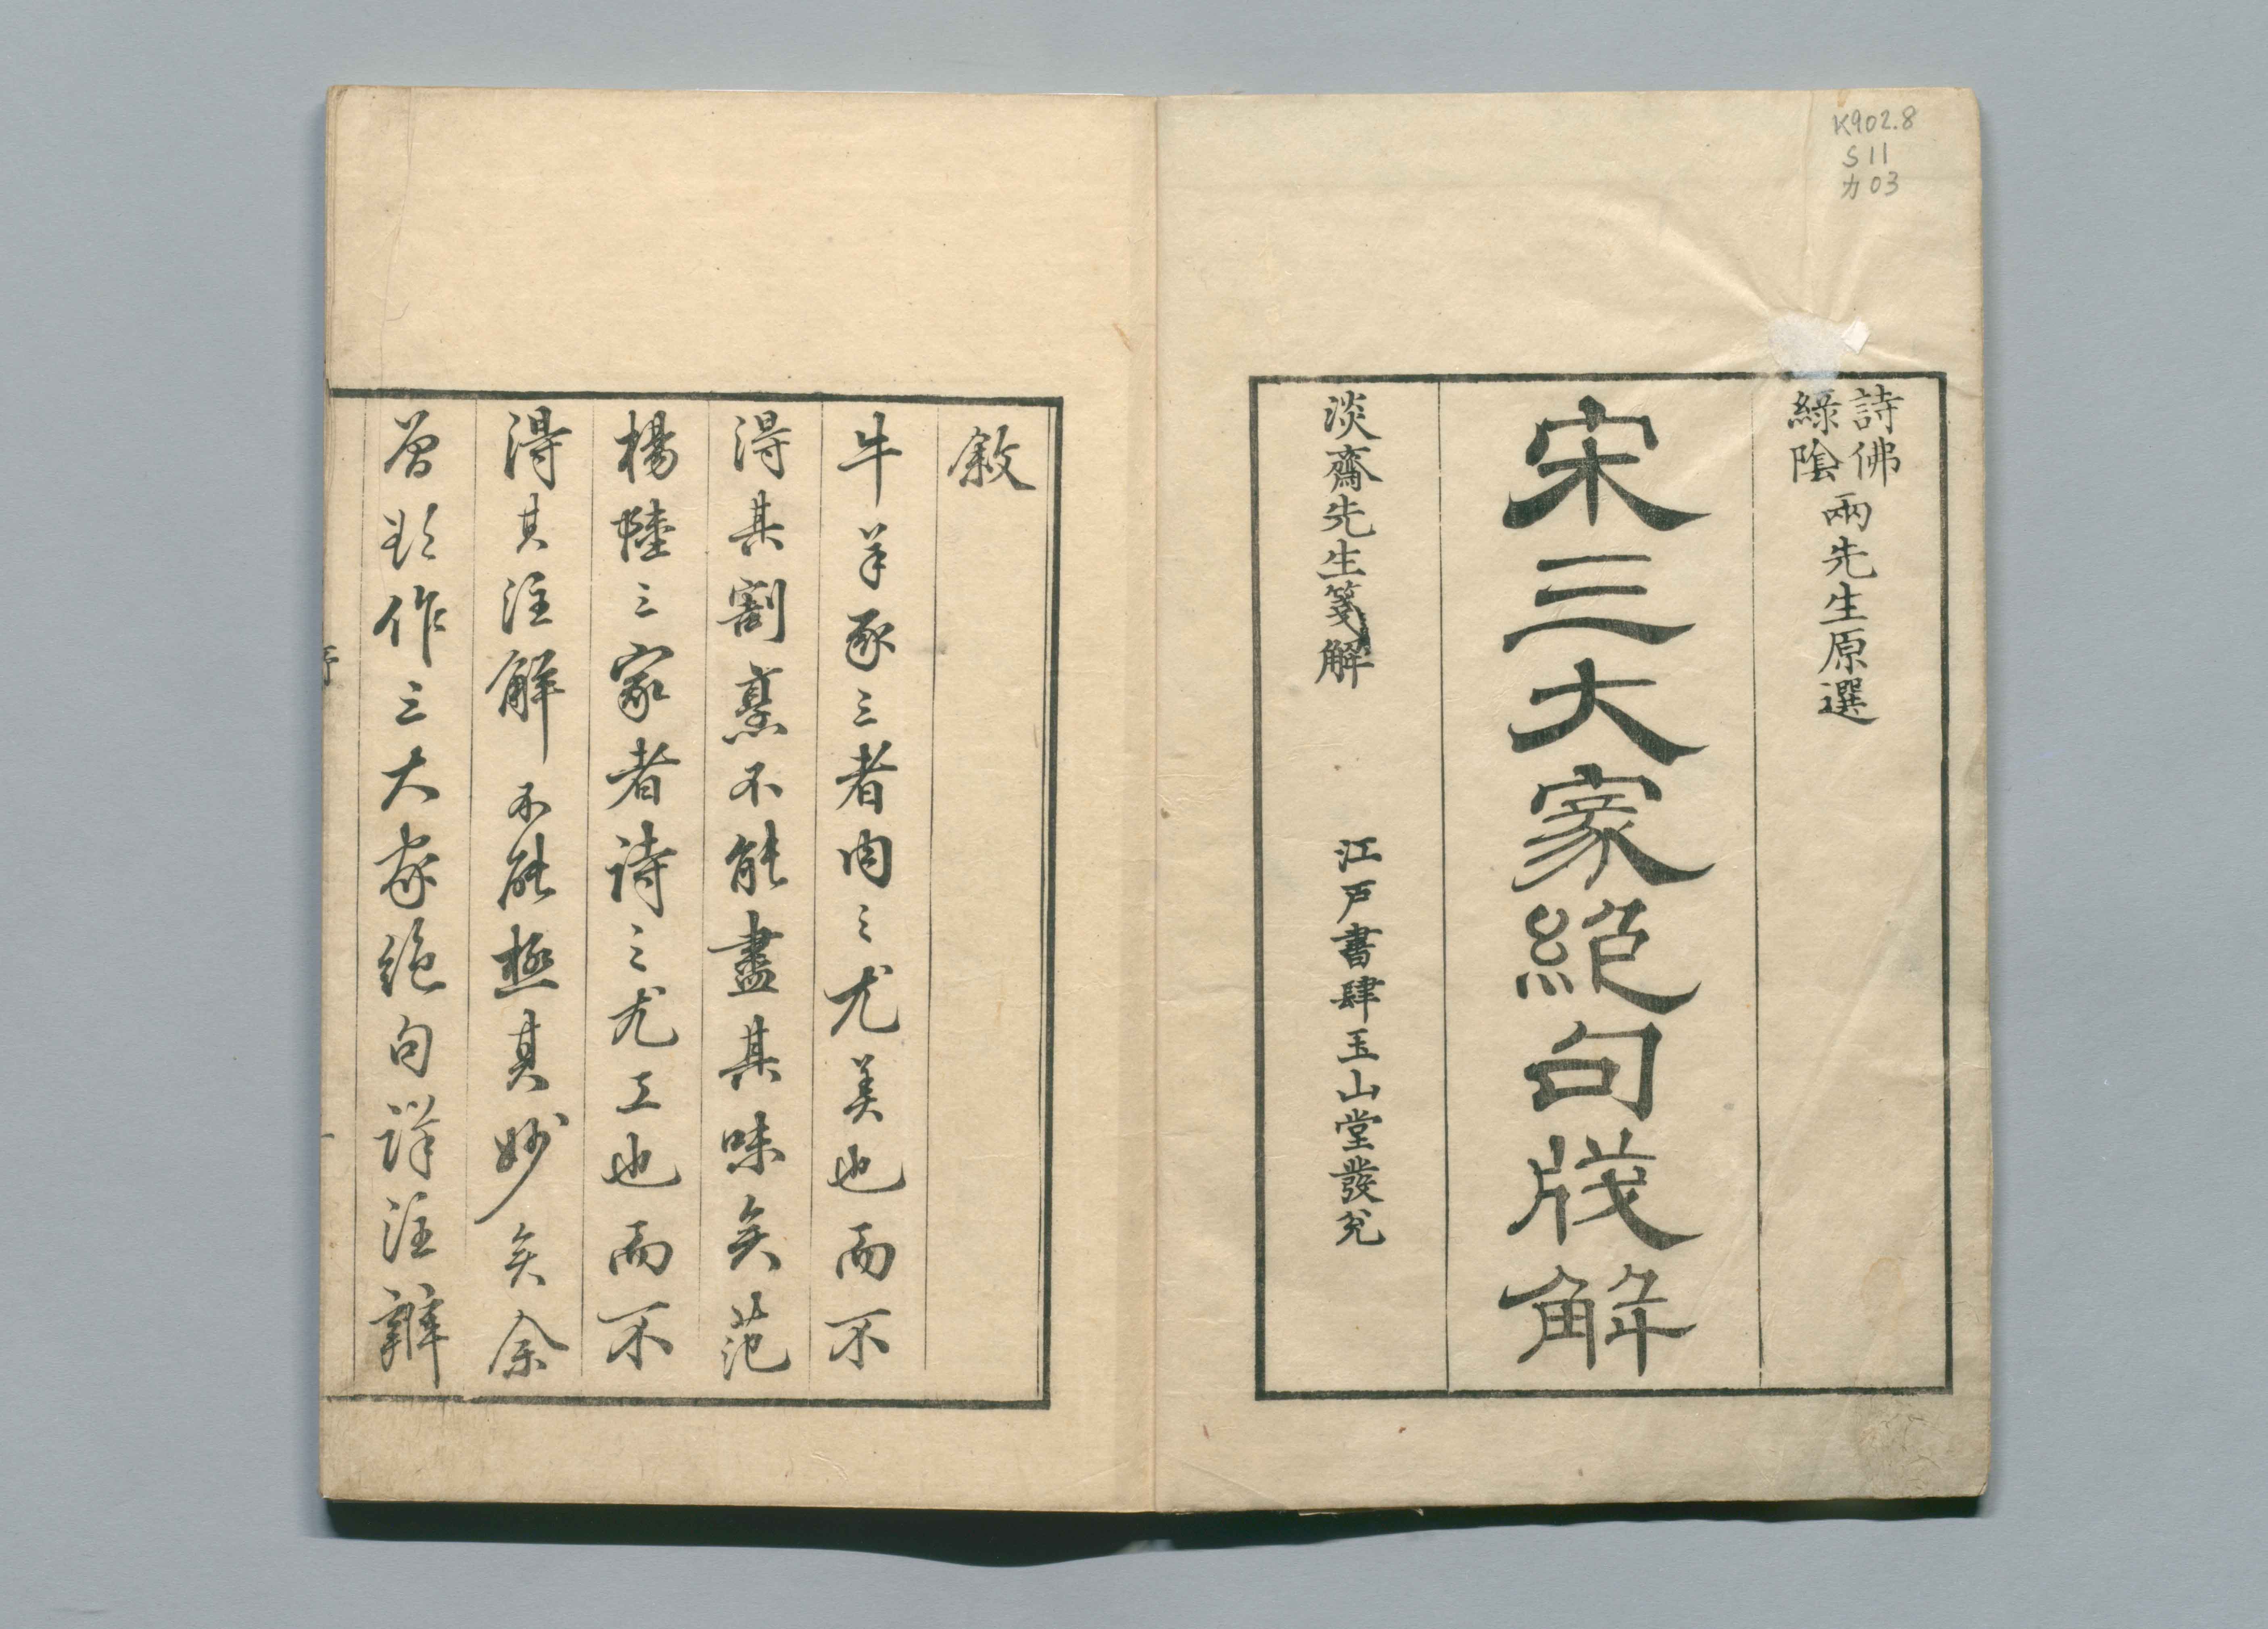 K902.8
S11
カ03
詩佛
綠陰
兩先生原選
宋三大家絕句牋解
淡齋先生箋解
江戶書肆玉山堂發兌
敘
牛羊豕三者肉之尤美也而不
得其割烹不能盡其味矣范
楊陸三家者詩之尤工也而不
得其注解不能極其妙矣余
曾欲作三大家絕句詳注辨
序
一